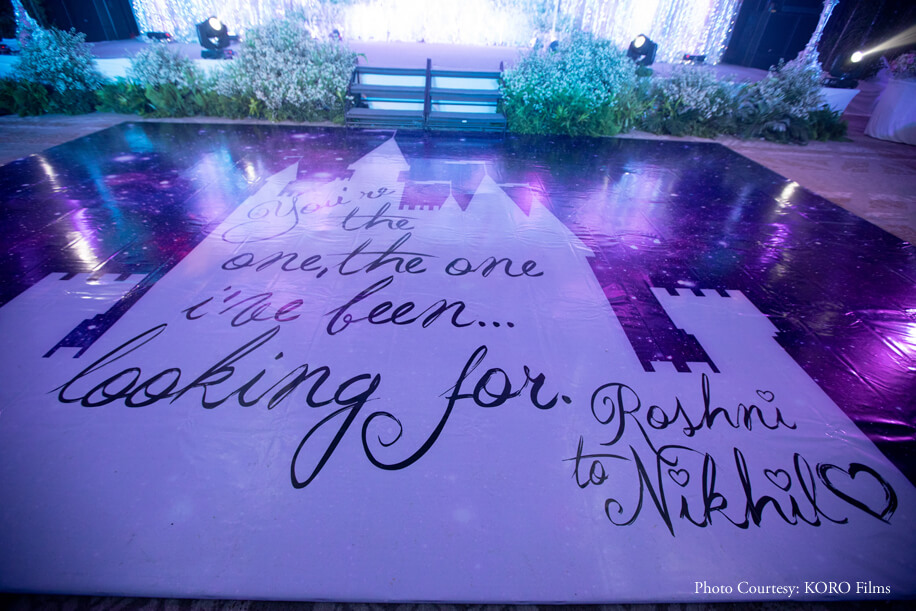 You're
the
one, the one
i've been...
looking for.
Roshni
to Nikhil
Photo Courtesy: KORO Films